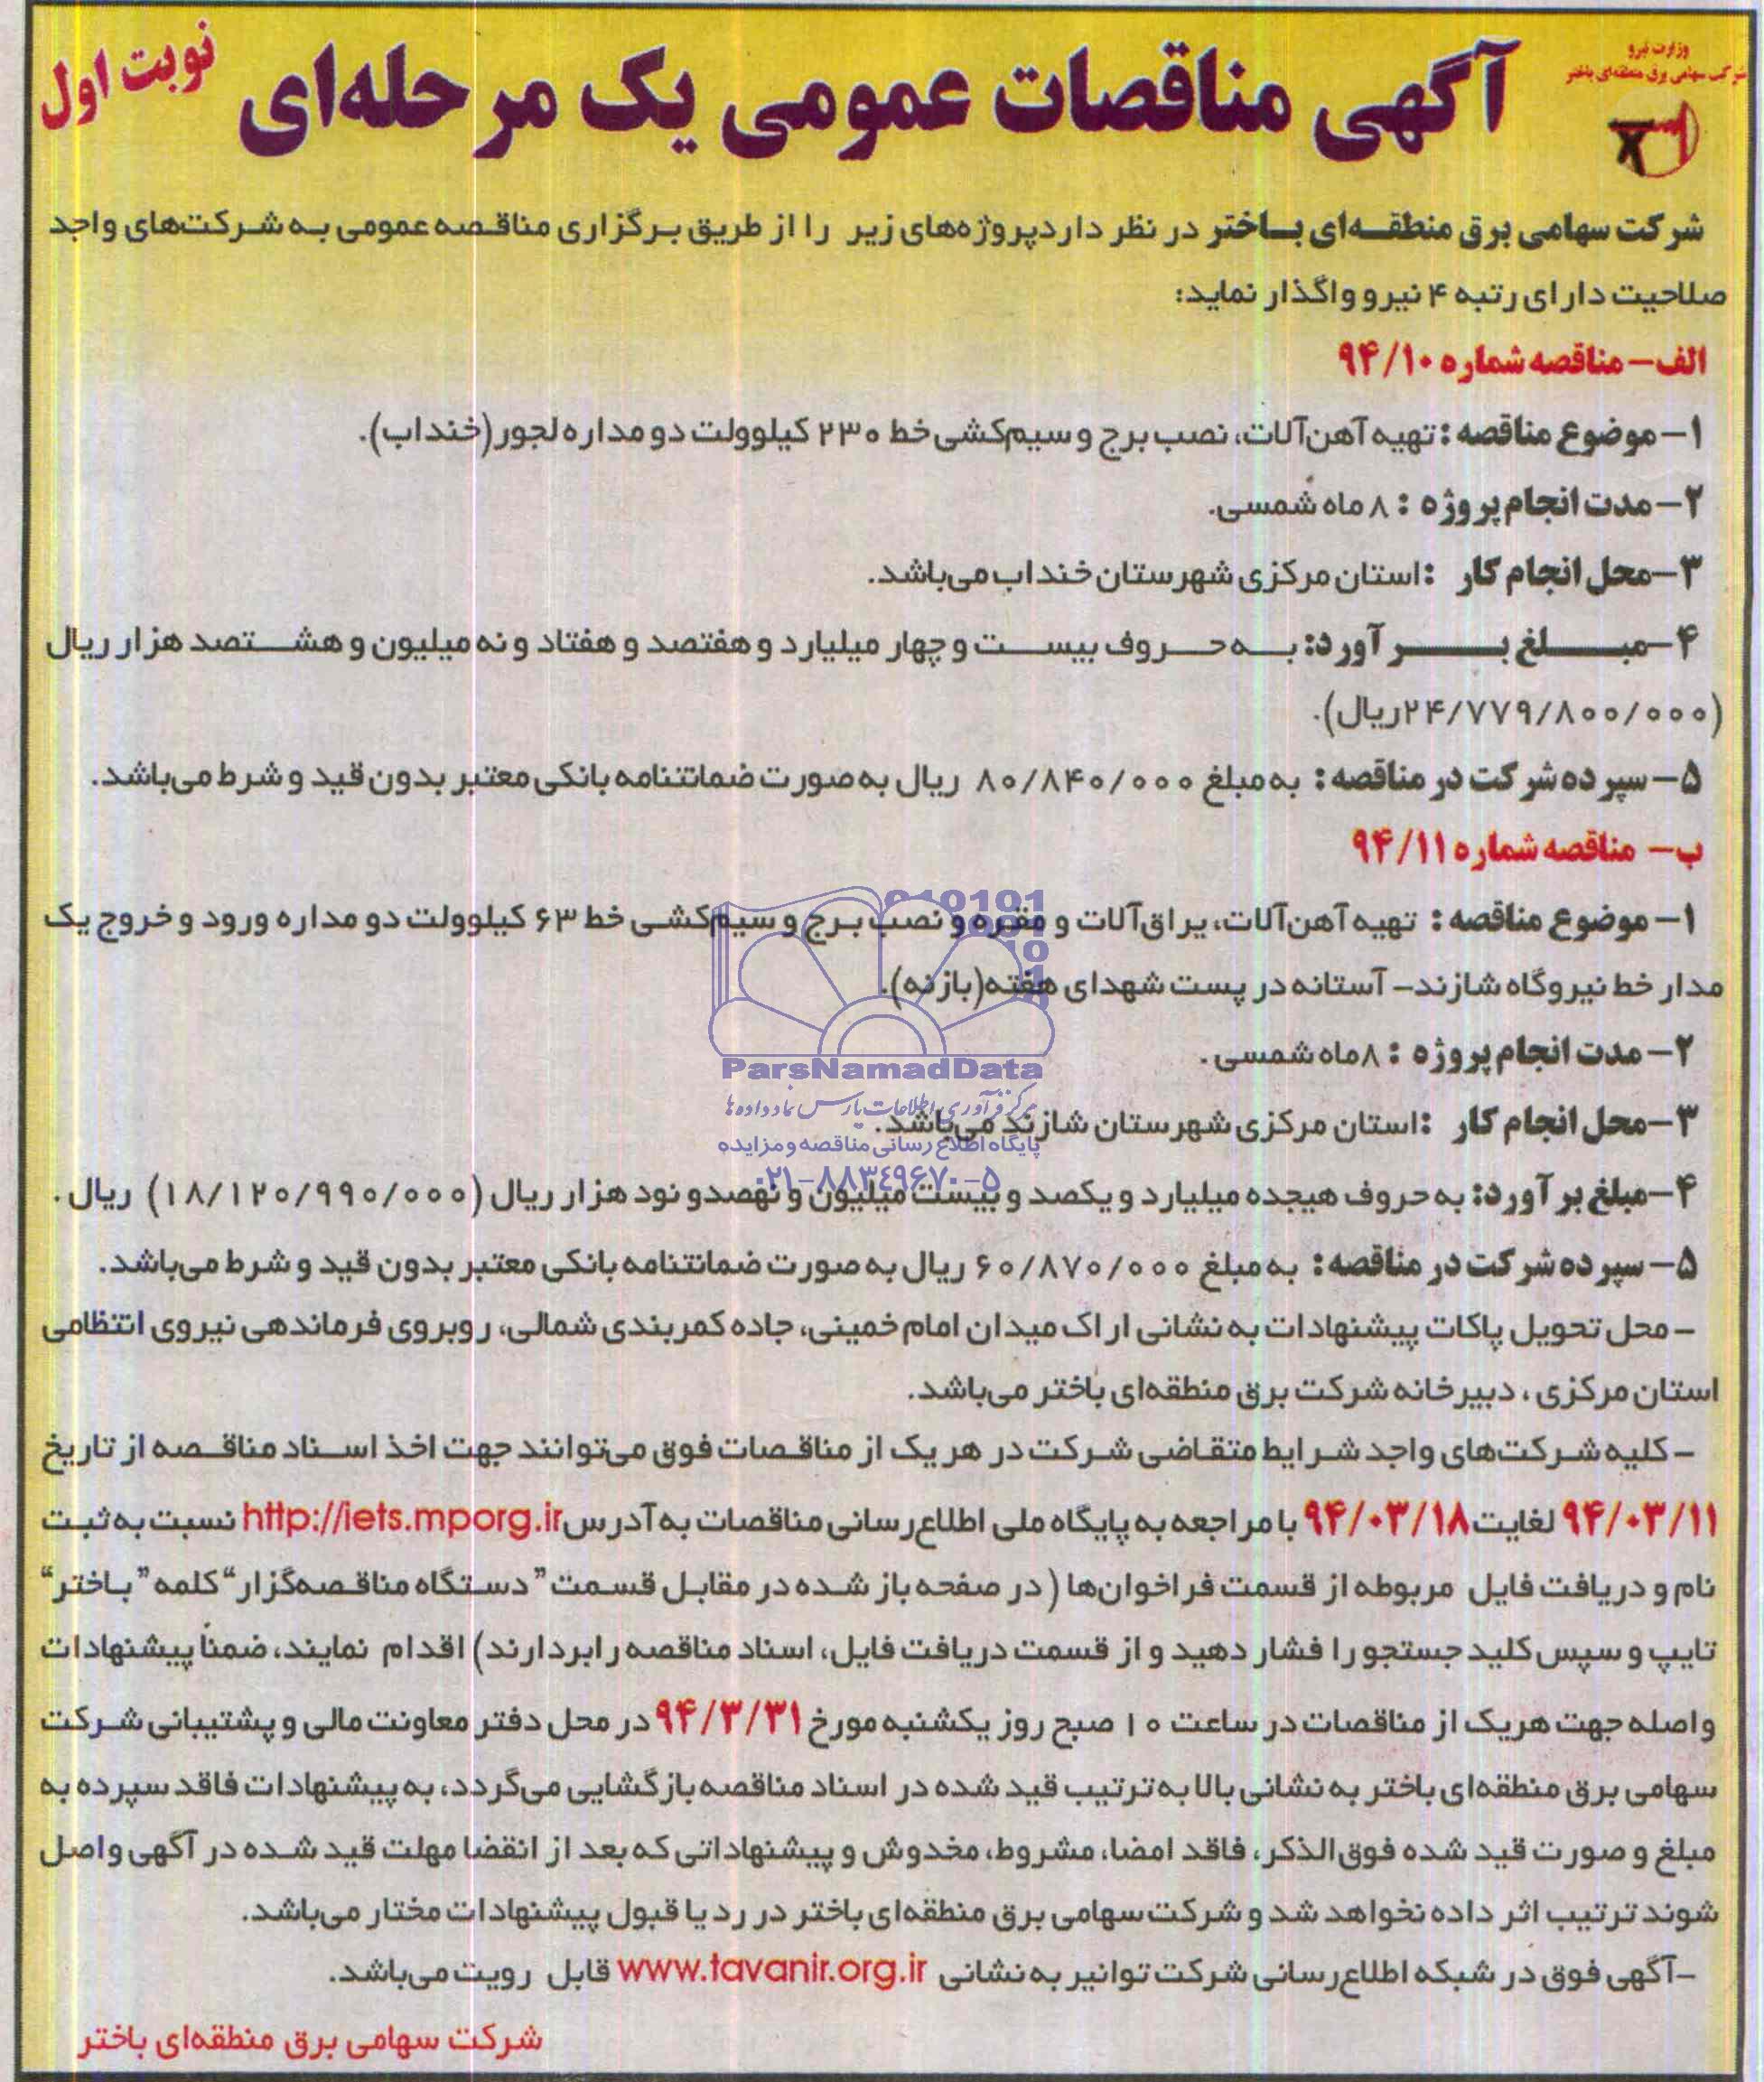 وزارت نیرو
شرکت سهامی برق منطقه‌ای باختر
آگهی مناقصات عمومی یک مرحله‌ای
نوبت اول
شرکت سهامی برق منطقه‌ای باختر در نظر دارد پروژه‌های زیر را از طریق برگزاری مناقصه عمومی به شرکت‌های واجد
صلاحیت دارای رتبه ۴ نیرو واگذار نماید:
الف– مناقصه شماره ۹۴/۱۰
۱– موضوع مناقصه : تهیه آهن‌آلات، نصب برج و سیم‌کشی خط ۲۳۰ کیلوولت دو مداره لجور(خنداب).
۲– مدت انجام پروژه : ۸ ماه شمسی.
۳–محل انجام کار : استان مرکزی شهرستان خنداب می‌باشد.
۴–مبلغ برآورد: به حروف بیست و چهار میلیارد و هفتصد و هفتاد و نه میلیون و هشتصد هزار ریال
(۲۴/۷۷۹/۸۰۰/۰۰۰ریال).
۵– سپرده شرکت در مناقصه : به مبلغ ۸۰/۸۴۰/۰۰۰ ریال به صورت ضمانتنامه بانکی معتبر بدون قید و شرط می‌باشد.
ب– مناقصه شماره ۹۴/۱۱
۱– موضوع مناقصه : تهیه آهن‌آلات، یراق‌آلات و مقره و نصب برج و سیم‌کشی خط ۶۳ کیلوولت دو مداره ورود و خروج یک
مدار خط نیروگاه شازند– آستانه در پست شهدای هفته(بازنه).
۲– مدت انجام پروژه : ۸ماه شمسی .
۳–محل انجام کار : استان مرکزی شهرستان شازند می‌باشد.
۴–مبلغ برآورد: به حروف هیجده میلیارد و یکصد و بیست میلیون و نهصدو نود هزار ریال (۱۸/۱۲۰/۹۹۰/۰۰۰) ریال .
۵– سپرده شرکت در مناقصه : به مبلغ ۶۰/۸۷۰/۰۰۰ ریال به صورت ضمانتنامه بانکی معتبر بدون قید و شرط می‌باشد.
– محل تحویل پاکات پیشنهادات به نشانی اراک میدان امام خمینی، جاده کمربندی شمالی، روبروی فرماندهی نیروی انتظامی
استان مرکزی ، دبیرخانه شرکت برق منطقه‌ای باختر می‌باشد.
– کلیه شرکت‌های واجد شرایط متقاضی شرکت در هر یک از مناقصات فوق می‌توانند جهت اخذ اسناد مناقصه از تاریخ
۹۴/۰۳/۱۱ لغایت ۹۴/۰۳/۱۸ با مراجعه به پایگاه ملی اطلاع‌رسانی مناقصات به آدرس http://iets.mporg.ir نسبت به ثبت
نام و دریافت فایل مربوطه از قسمت فراخوان‌ها ( در صفحه باز شده در مقابل قسمت ”دستگاه مناقصه‌گزار“ کلمه ”باختر“
تایپ و سپس کلید جستجو را فشار دهید و از قسمت دریافت فایل، اسناد مناقصه را بردارند) اقدام نمایند، ضمناً پیشنهادات
واصله جهت هریک از مناقصات در ساعت ۱۰ صبح روز یکشنبه مورخ ۹۴/۳/۳۱ در محل دفتر معاونت مالی و پشتیبانی شرکت
سهامی برق منطقه‌ای باختر به نشانی بالا به ترتیب قید شده در اسناد مناقصه بازگشایی می‌گردد، به پیشنهادات فاقد سپرده به
مبلغ و صورت قید شده فوق‌الذکر، فاقد امضا، مشروط، مخدوش و پیشنهاداتی که بعد از انقضا مهلت قید شده در آگهی واصل
شوند ترتیب اثر داده نخواهد شد و شرکت سهامی برق منطقه‌ای باختر در رد یا قبول پیشنهادات مختار می‌باشد.
–آگهی فوق در شبکه اطلاع‌رسانی شرکت توانیر به نشانی www.tavanir.org.ir قابل رویت می‌باشد.
شرکت سهامی برق منطقه‌ای باختر
ParsNamadData
مرکز فرآوری اطلاعات پارس نماد داده ها
پایگاه اطلاع رسانی مناقصه و مزایده
۰۲۱-۸۸۳۴۹۶۷۰-۵